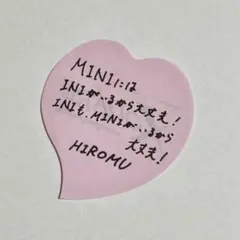 MINIには
INIがいるから大丈夫!
INIも、MINIがいるから
大丈夫!
HIROMU